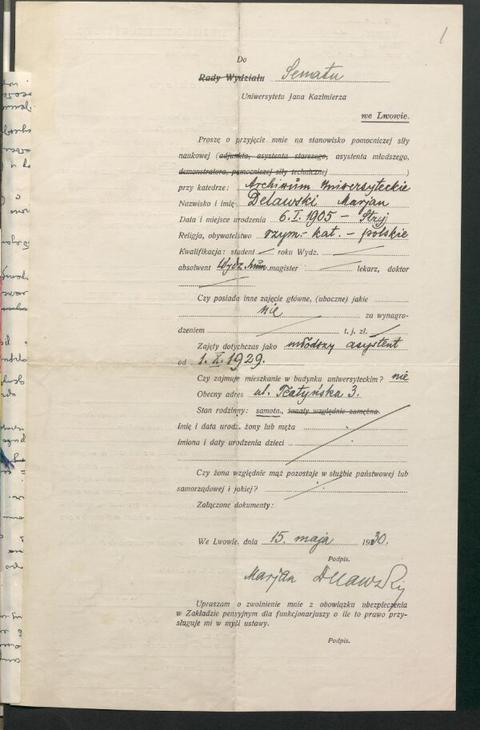 1
Do
Rady Wydziału Senatu
Uniwersytetu Jana Kazimierza
we Lwowie.
Proszę o przyjęcie mnie na stanowisko pomocniczej siły
naukowej (adjunkta, asystenta starszego, asystenta młodszego,
demonstratora, pomocniczej siły technicznej )
przy katedrze: Archiwum Uniwersyteckie
Nazwisko i imię Delawski Marjan
Data i miejsce urodzenia 6.I.1905 – Stryj
Religja, obywatelstwo rzym.-kat. – polskie
Kwalifikacja: student roku Wydz.
absolwent Wydz. Hum. magister lekarz, doktor
Czy posiada inne zajęcie główne, (uboczne) jakie
nie za wynagro-
dzeniem t. j. zł.
Zajęty dotychczas jako młodszy asystent
od 1.X.1929.
Czy zajmuje mieszkanie w budynku uniwersyteckim? nie
Obecny adres ul. 3.
Stan rodzinny: samotn., żonaty względnie zamężna.
Imię i data urodz. żony lub męża
imiona i daty urodzenia dzieci
Czy żona względnie mąż pozostaje w służbie państwowej lub
samorządowej i jakiej?
Załączone dokumenty:
We Lwowie, dnia 15. maja 1930.
Podpis.
Marjan Delawski
Upraszam o zwolnienie mnie z obowiązku ubezpieczenia
w Zakładzie pensyjnym dla funkcjonarjuszy o ile to prawo przy-
sługuje mi w myśl ustawy.
Podpis.